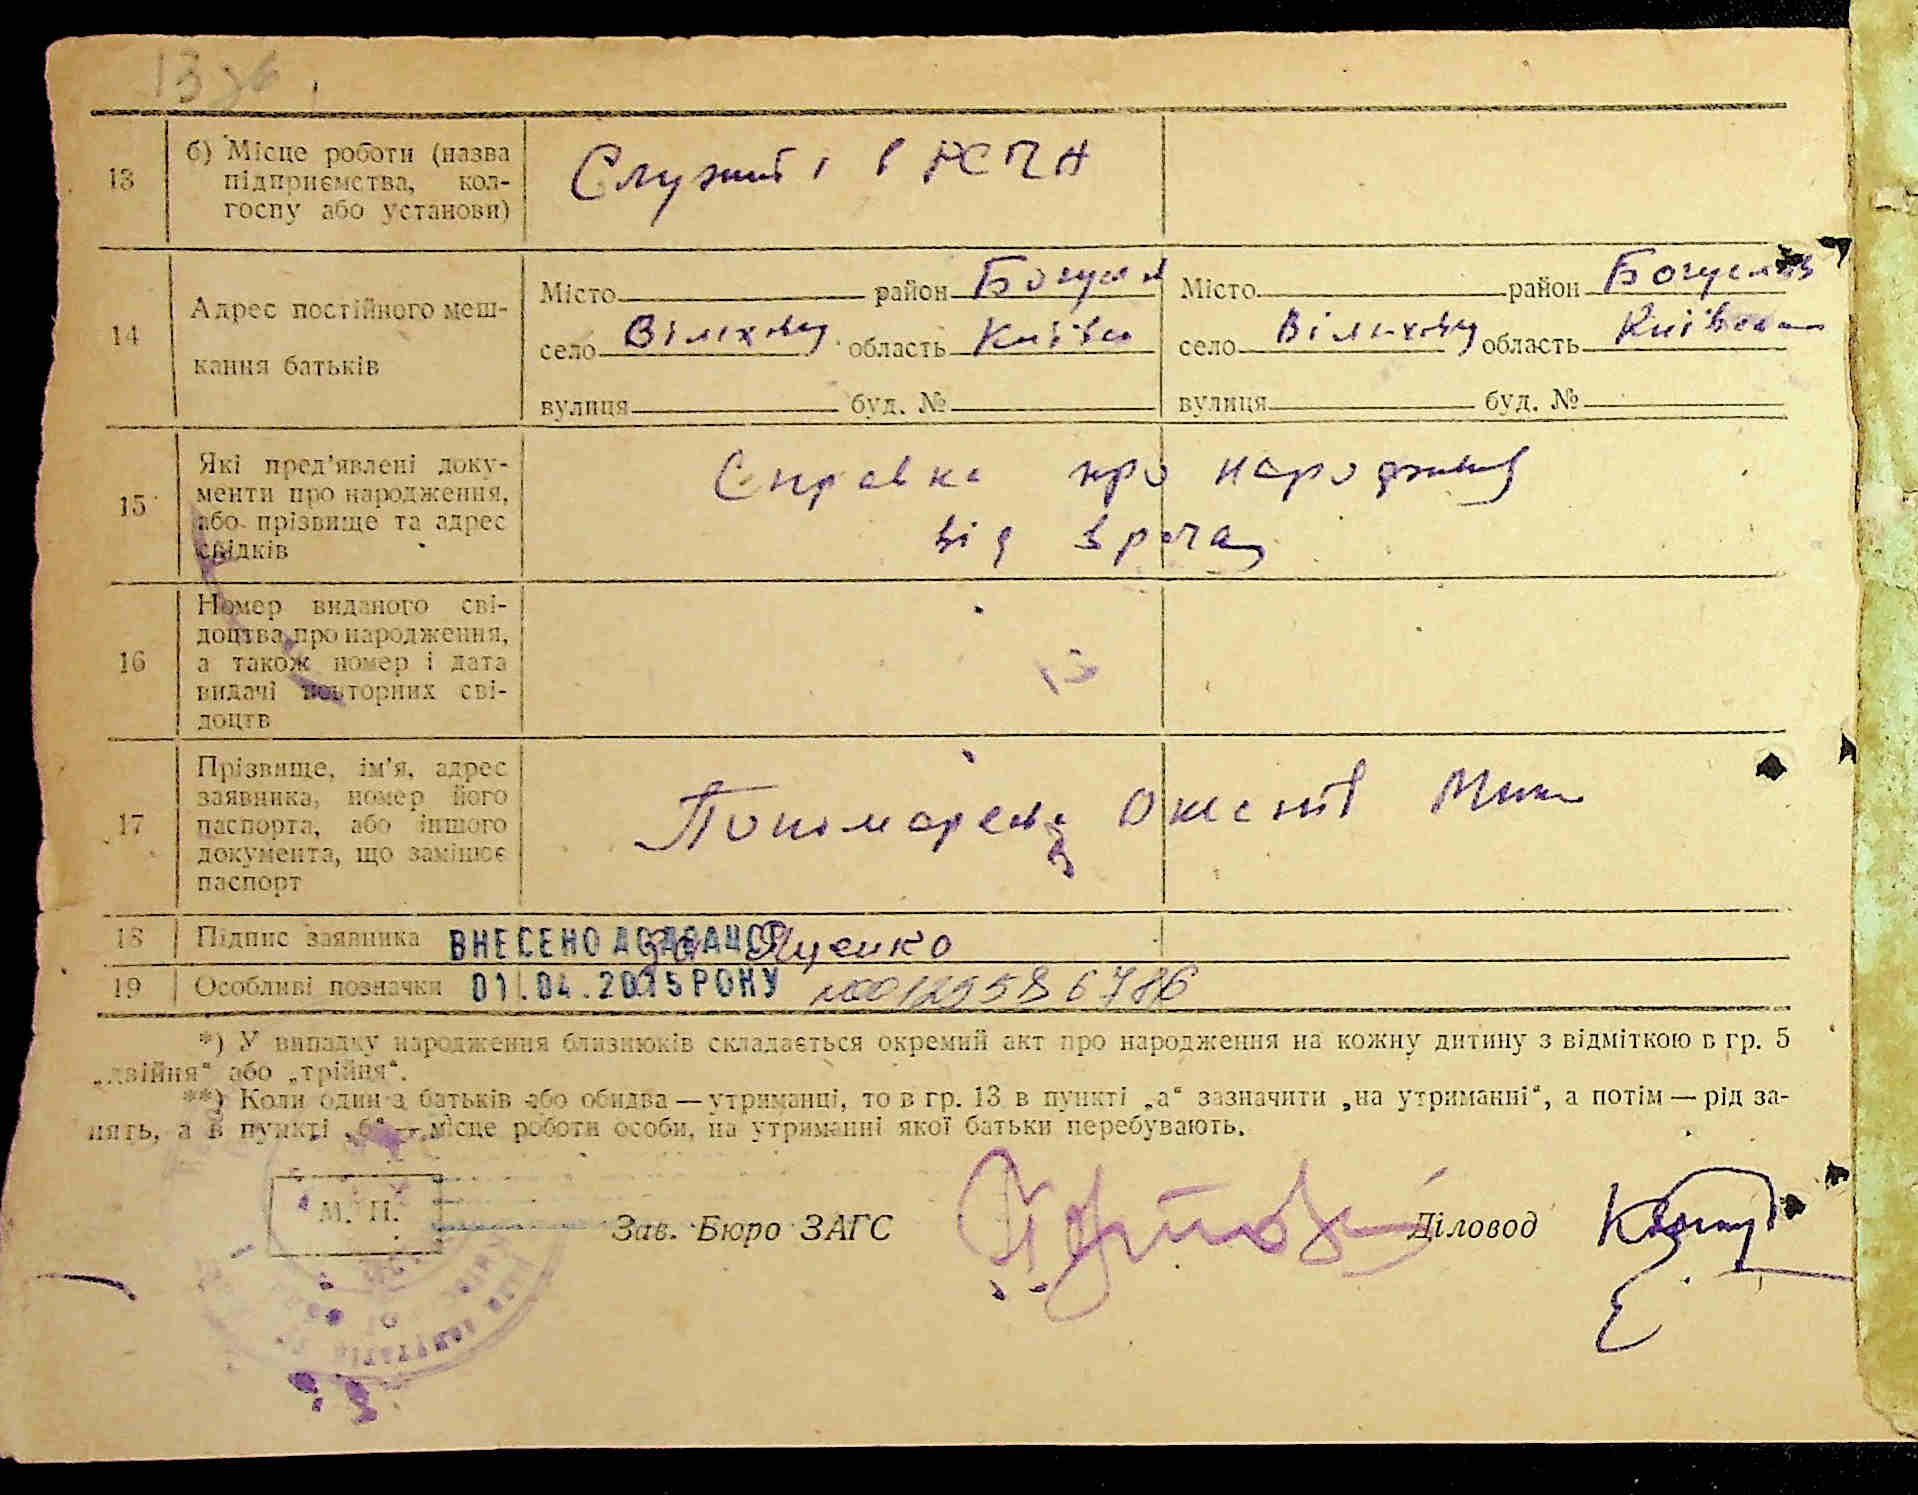 13
б) Місце роботи (назва
підприємства, кол-
госпу або установи)
Служит в РСЧА
14
Адрес постійного меш-
кання батьків
Місто район Богуслав
село Вільховец область Київськ
вулиця буд. №
Місто район Богуслав
село Вільховец область Київська
вулиця буд. №
15
Які пред'явлені доку-
менти про народження,
або прізвище та адрес
свідків
Справка про народження
від врача
16
Номер виданого сві-
доцтва про народження,
а також номер і дата
видачі повторних сві-
доцтв
13
17
Прізвище, ім'я, адрес
заявника, номер його
паспорта, або іншого
документа, що заміщює
паспорт
Пономарева
18
Підпис заявника
ВНЕСЕНО ДО ДРАЦС
Яценко
19
Особливі позначки
01.04.2015 РОКУ
№00129586786
*) У випадку народження близнюків складається окремий акт про народження на кожну дитину з відміткою в гр. 5
„двійня“ або „трійня“.
**) Коли один з батьків або обидва — утриманці, то в гр. 13 в пункті „а“ зазначити „на утриманні“, а потім — рід за-
нять, а в пункті „б“ — місце роботи особи, на утриманні якої батьки перебувають.
М. П.
Зав. Бюро ЗАГС
Діловод